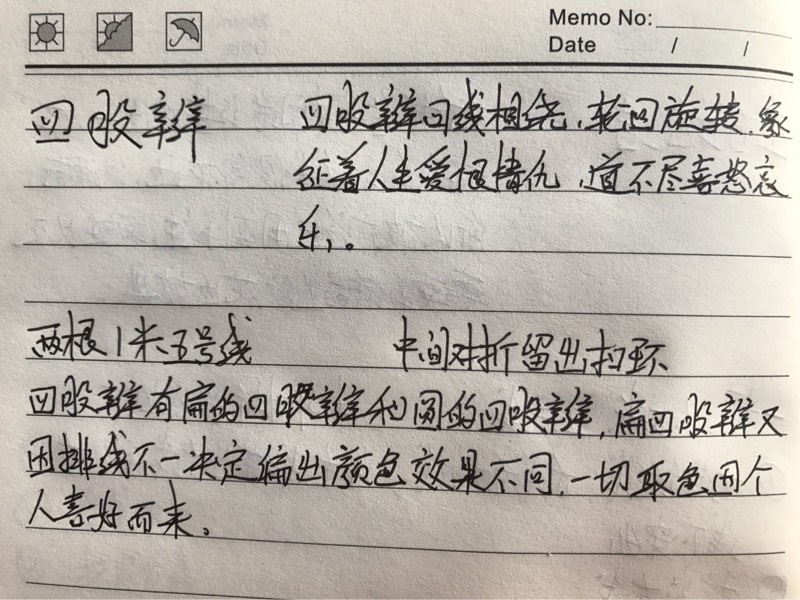 Memo No:
Date / /
四股辫 四股辫四线相绕、轮回旋转、象
征着人生爱恨情仇、道不尽喜怒哀
乐。
两根1米5号线 中间对折留出扣环
四股辫有扁的四股辫和圆的四股辫,扁四股辫又
因排线不一决定编出颜色效果不同,一切取色因个
人喜好而来。